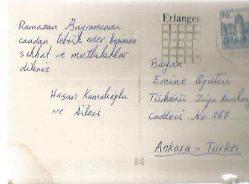 Ramazan Bayramınızı
candan tebrik eder hepinize
sıhhat ve mutluluklar
dileriz
Hasan Kamalıoğlu
ve Ailesi
Erlangen
70
Bayan
Emine Oğutcu
Türkanü Ziya
Caddesi No. 267
Ankara - Türkei